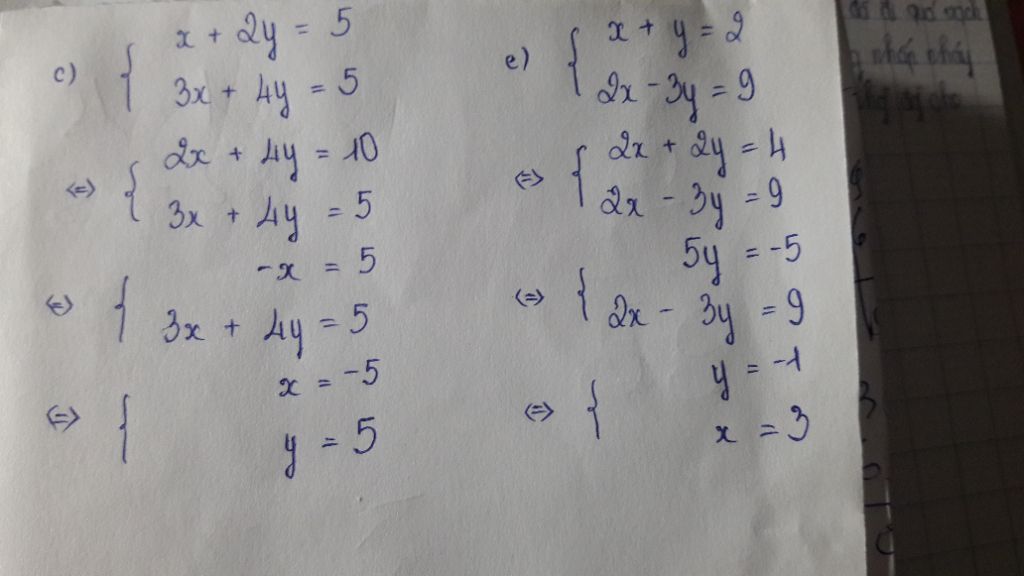 c) { x + 2y = 5
3x + 4y = 5
<=> { 2x + 4y = 10
3x + 4y = 5
<=> { -x = 5
3x + 4y = 5
<=> { x = -5
y = 5
e) { x + y = 2
2x - 3y = 9
<=> { 2x + 2y = 4
2x - 3y = 9
<=> { 5y = -5
2x - 3y = 9
<=> { y = -1
x = 3